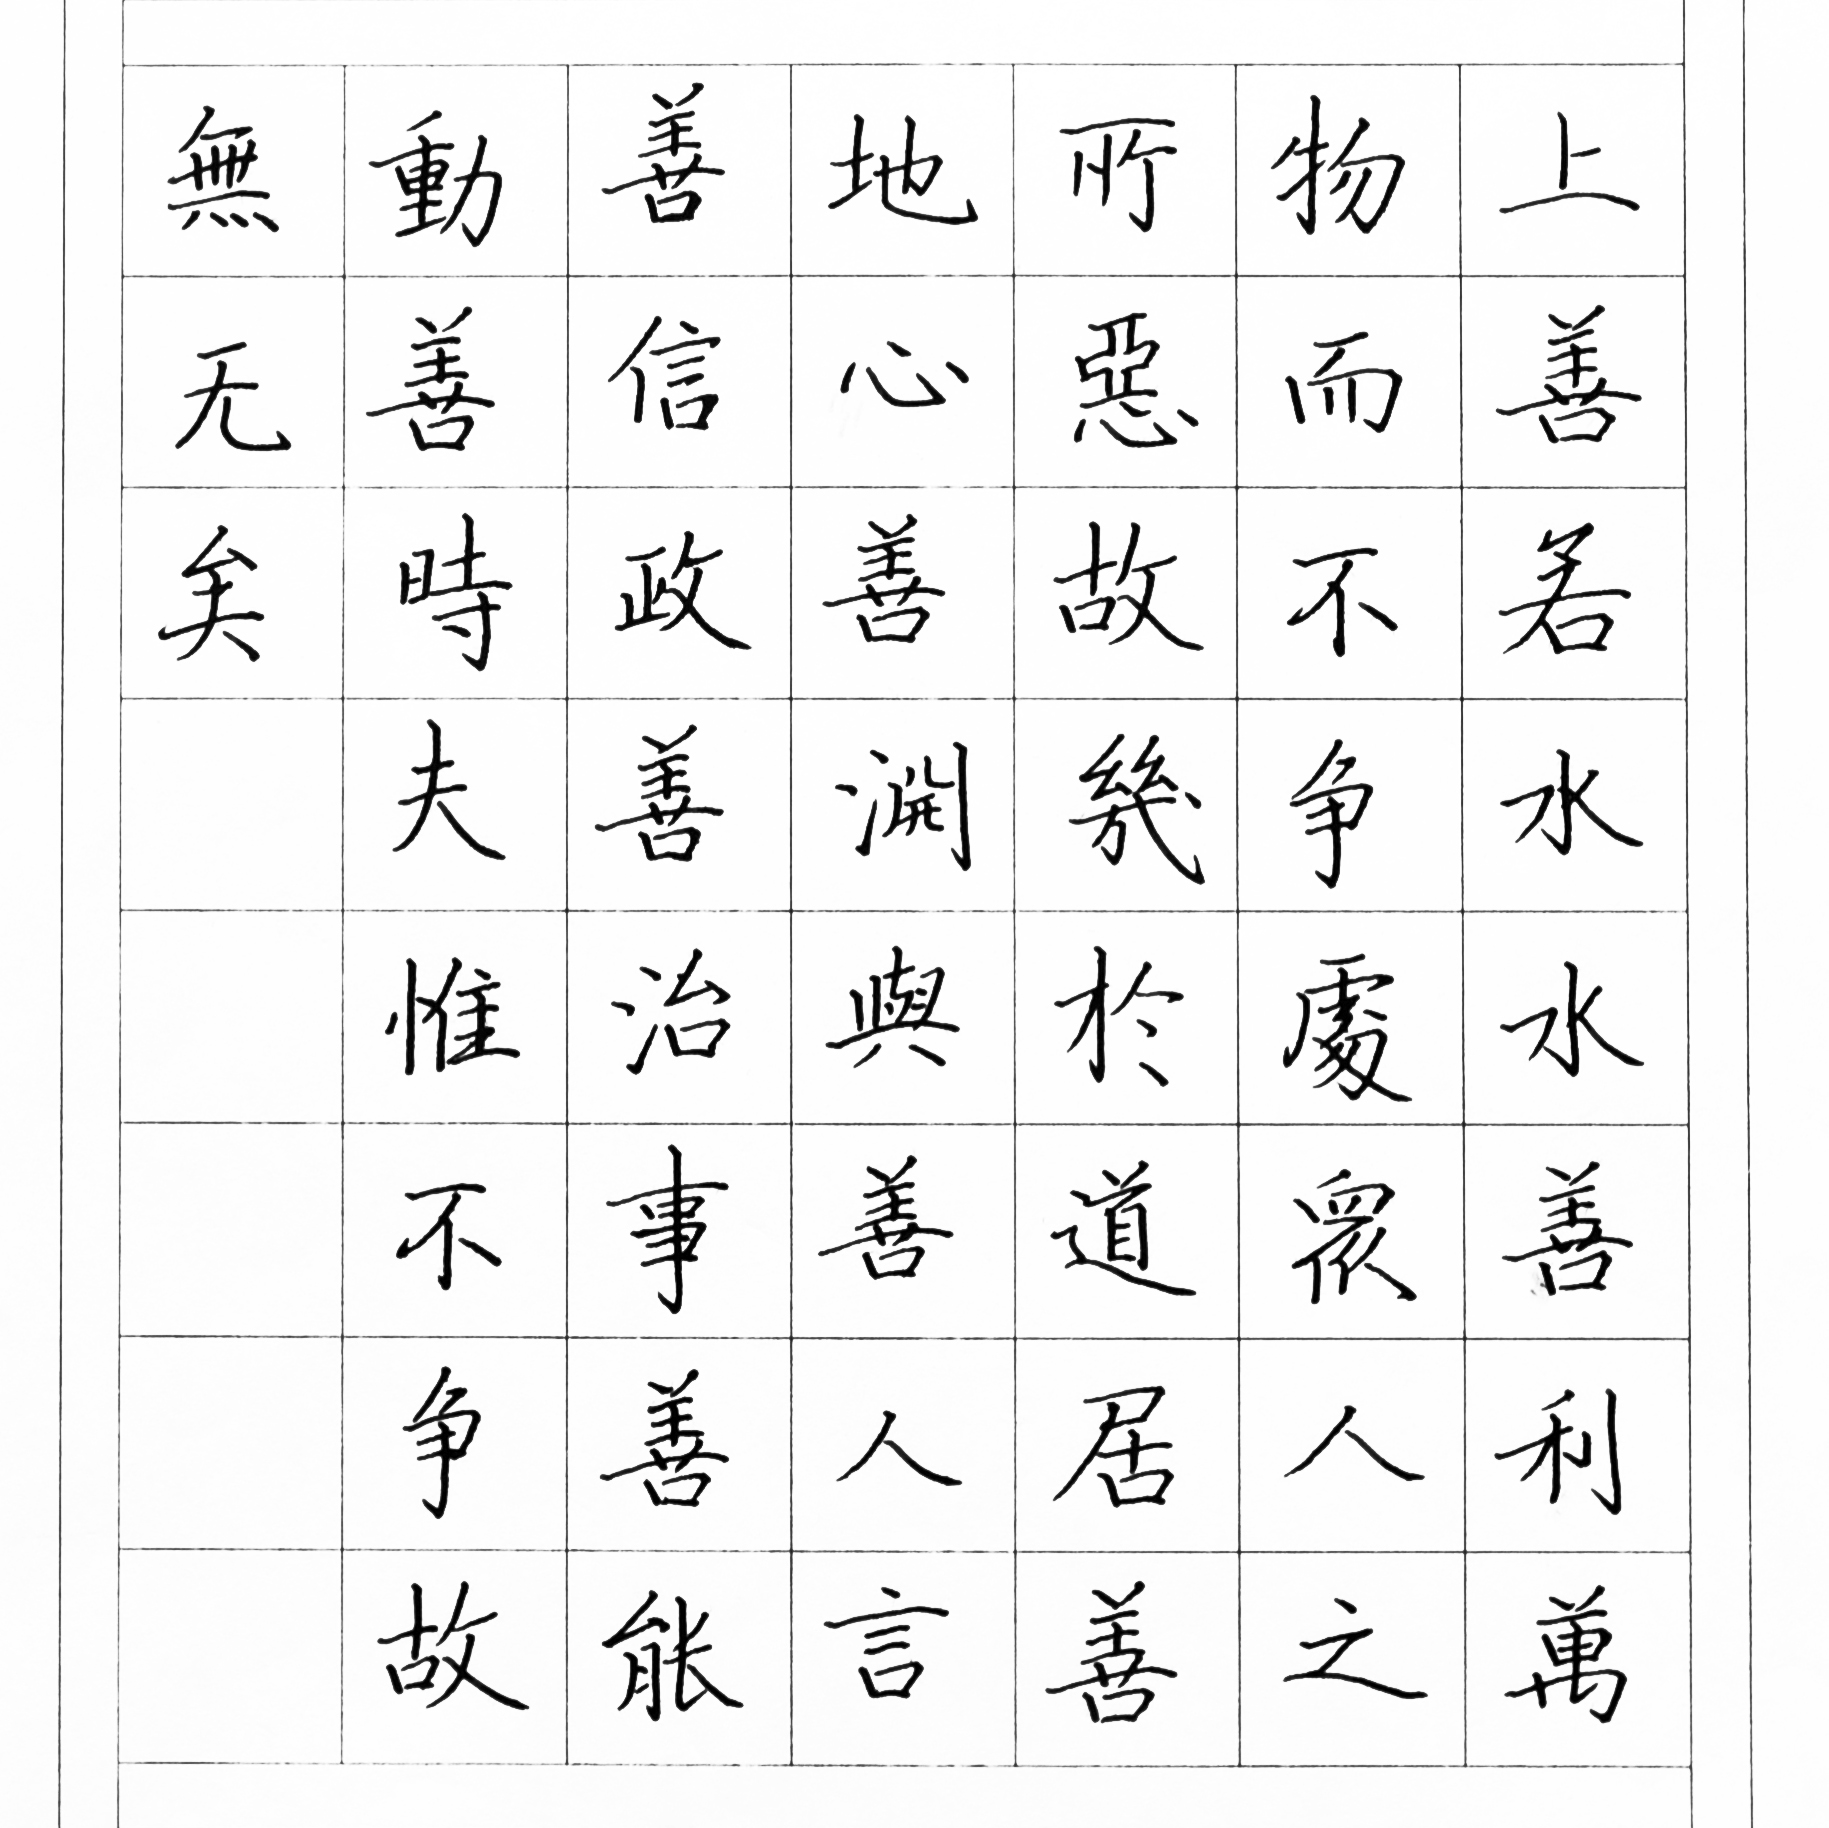 上善若水水善利萬
物而不争處眾人之
所惡故幾於道居善
地心善淵與善人言
善信政善治事善能
動善時夫惟不争故
無无矣